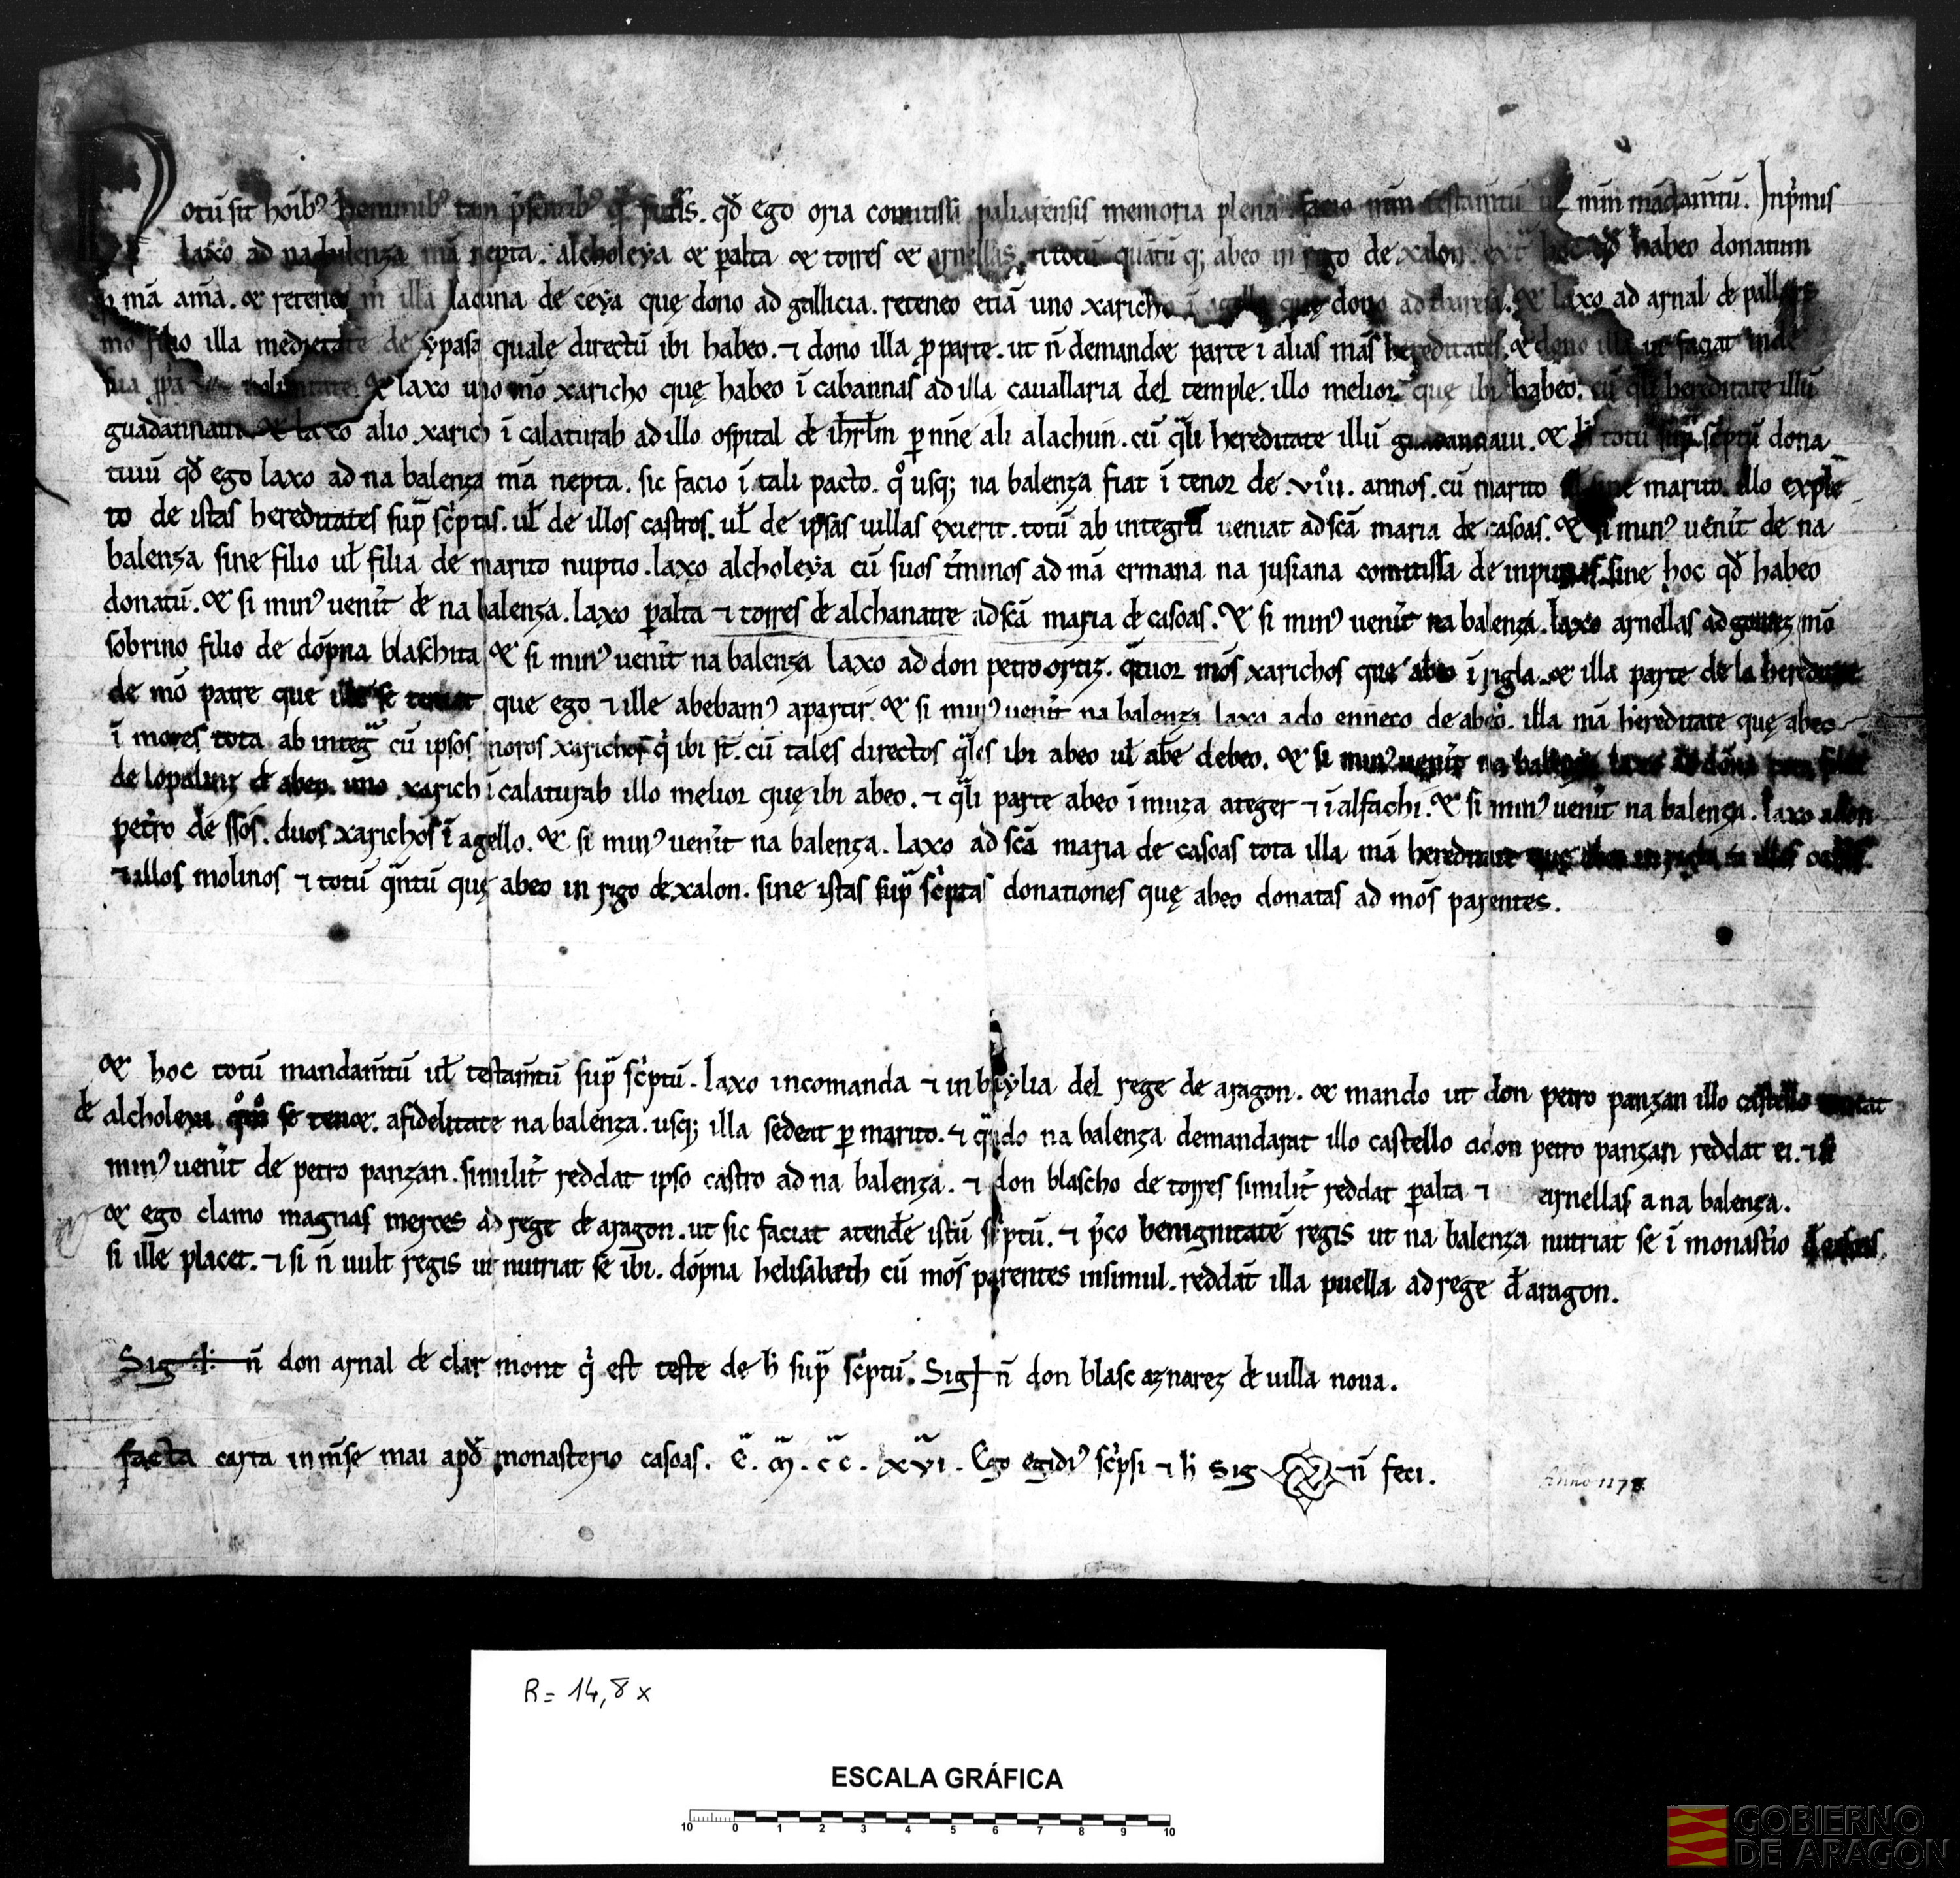 Notū sit hoīb⁹ hominib⁹ tam p̄sentib⁹ q̄ futis. qđ ego oria comitissa paliarensis memoria plena facio mm̄ testam̄tū ul̄ mm̄ mādam̄tū. Inp̄mis
laxo ad na balenza mā nepta. alcholeya et p̄alta et torres et arnellas. ⁊ totū quātū q; abeo in rigo de xalon. ext̄ hoc qđ habeo donatum
p mā am̄a. et reteneo m̄ illa lacuna de ceya quę dono ad gallicia. reteneo etiā uno xaricho ī agello quę dono ad. et laxo ad arnal de pallars
mo filio illa medietate de ypasa quale directū ibi habeo. ⁊ dono illa p parte. ut n̄ demandet parte ī alias mās hereditates. et dono illa ut faciat inde
sua ppa uoluntate. et laxo uno mō xaricho quę habeo ī cabannas ad illa cauallaria del temple. illo melior quę ibi habeo. cū q̄li hereditate illū
guadannaui. et laxo alio xarich ī calaturab ad illo ospital de ihrl̄m p nn̄e ali alachun. cū q̄li hereditate illū guadannaui. et h̄ totū sup̄ sc̄ptū dona
tiuū qđ ego laxo ad na balenza mā nepta. sic facio ī tali pacto. q° usq; na balenza fiat ī tenor de .viii. annos. cū marito ul̄ sine marito. illo exple
to de istas hereditates sup̄ sc̄ptas. ul̄ de illos castros. ul̄ de ipsas uillas exierit. totū ab integru ueniat ad sc̄ā maria de casoas. et si min⁹ uen̄it de na
balenza sine filio ul̄ filia de marito nuptio. laxo alcholeya cū suos t̄minos ad mā ermana na jusiana comitissa de inpurias. sine hoc qđ habeo
donatū. et si min⁹ uen̄it de na balenza. laxo p̄alta ⁊ torres de alchanatre ad sc̄ā maria de casoas. et si min⁹ uen̄it na balenza. laxo arnellas ad gomez mō
sobrino filio de dōpna blaschita et si min⁹ uen̄it na balenza laxo ad don petro ortiz. q̄tuor mōs xarichos que abeo ī rigla. et illa parte de la hereditate
de mō patre que ille se tenet que ego ⁊ ille abebam⁹ apartir. et si min⁹ uen̄it na balenza laxo ado enneco de abeo. illa mā hereditate quę abeo
ī mores tota ab inteḡ cū ipsos moros xarichos q̄ ibi st̄. cū tales directos q̄les ibi abeo ul̄ ab̄e debeo. et si min⁹ uen̄it na balenza laxo ad dōna
de lopalinz de abeo. uno xarich ī calaturab illo melior quę ibi abeo. ⁊ q̄li parte abeo ī muza ateger ⁊ ī alfachi. et si min⁹ uen̄it na balenza. laxo adon
pet̄ro de ssos. duos xarichos ī agello. et si min⁹ uen̄it na balenza. laxo ad sc̄ā maria de casoas tota illa mā hereditate quę abeo in rigla
⁊ allos molinos ⁊ totū q̄ntū quę abeo in rigo de xalon. sine istas sup̄ sc̄ptas donationes quę abeo donatas ad mōs parentes.
et hoc totū mandam̄tū ul̄ testam̄tū sup̄ sc̄ptū. laxo incomanda ⁊ in baylia del rege de aragon. et mando ut don petro panzan illo castello teneat
de alcholeya q°m° se tenet. afidelitate na balenza. usq; illa sedeat p marito. ⁊ q̄ndo na balenza demandarat illo castello adon petro panzan reddat ei. ⁊ si
min⁹ uen̄it de petro panzan. similit̄ reddat ipso castro ad na balenza. ⁊ don blascho de torres similit̄ reddat p̄alta ⁊ arnellas a na balenza.
et ego clamo magnas merces ad rege de aragon. ut sic faciat atend̄e istū sc̄ptū. ⁊ p̄co benignitatē regis ut na balenza nutriat se ī monast̄io de casoas.
si ille placet. ⁊ si n̄ uult regis ut nutriat se ibi. dōpna helisabeth cū mōs parentes insimul. reddāt illa puella ad rege đ aragon.
Sig+n̄ don arnal de clar mont q̄ est teste de h̄ sup̄ sc̄ptū. Sig+n̄ don blasc aznarez de uilla noua.
facta carta in m̄se mai apđ monasterio casoas. Ē. M̄. c̄c̄. xvi. Ego egidi⁹ sc̄psi ⁊ h̄ sig n̄ feci.
Anno 1178
R = 14,8 x
ESCALA GRÁFICA
10 0 1 2 3 4 5 6 7 8 9 10
GOBIERNO
DE ARAGON